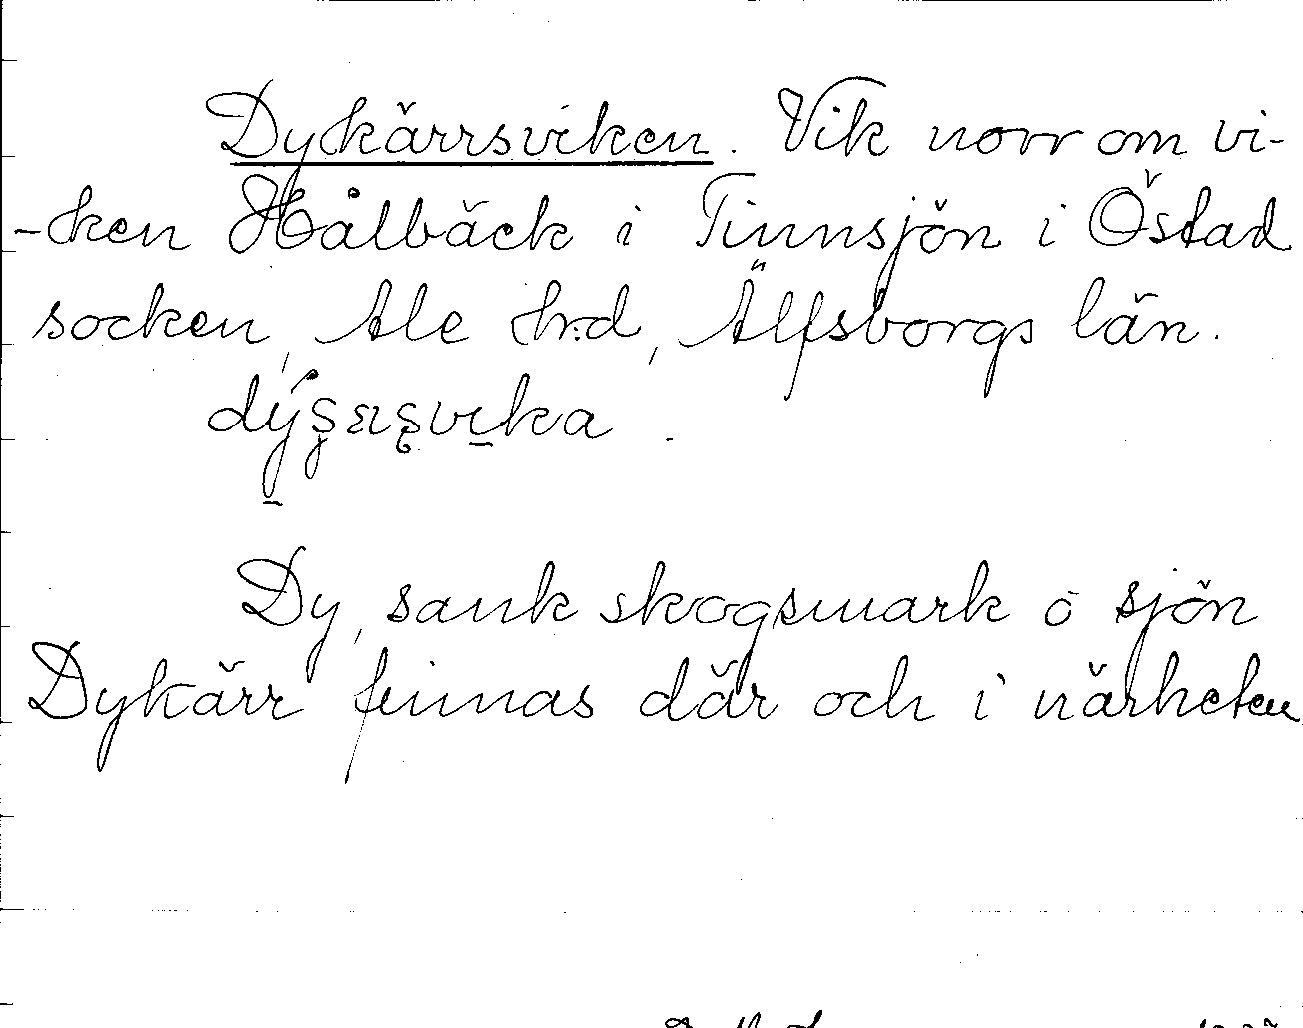 Dykärrsviken. Vik norr om vi-
-ken Hålbäck i Tinnsjön i Östad
socken, Ale hrd, Älfsborgs län.
Dy, sank skogsmark o sjön
Dykärr finnas där och i närheten